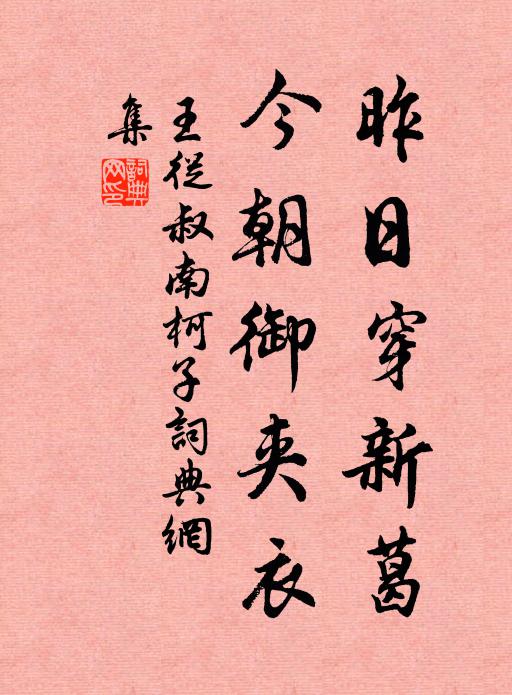 昨日穿新葛
今朝御夾衣
王從叔南柯子詞典網
集
詞典網印